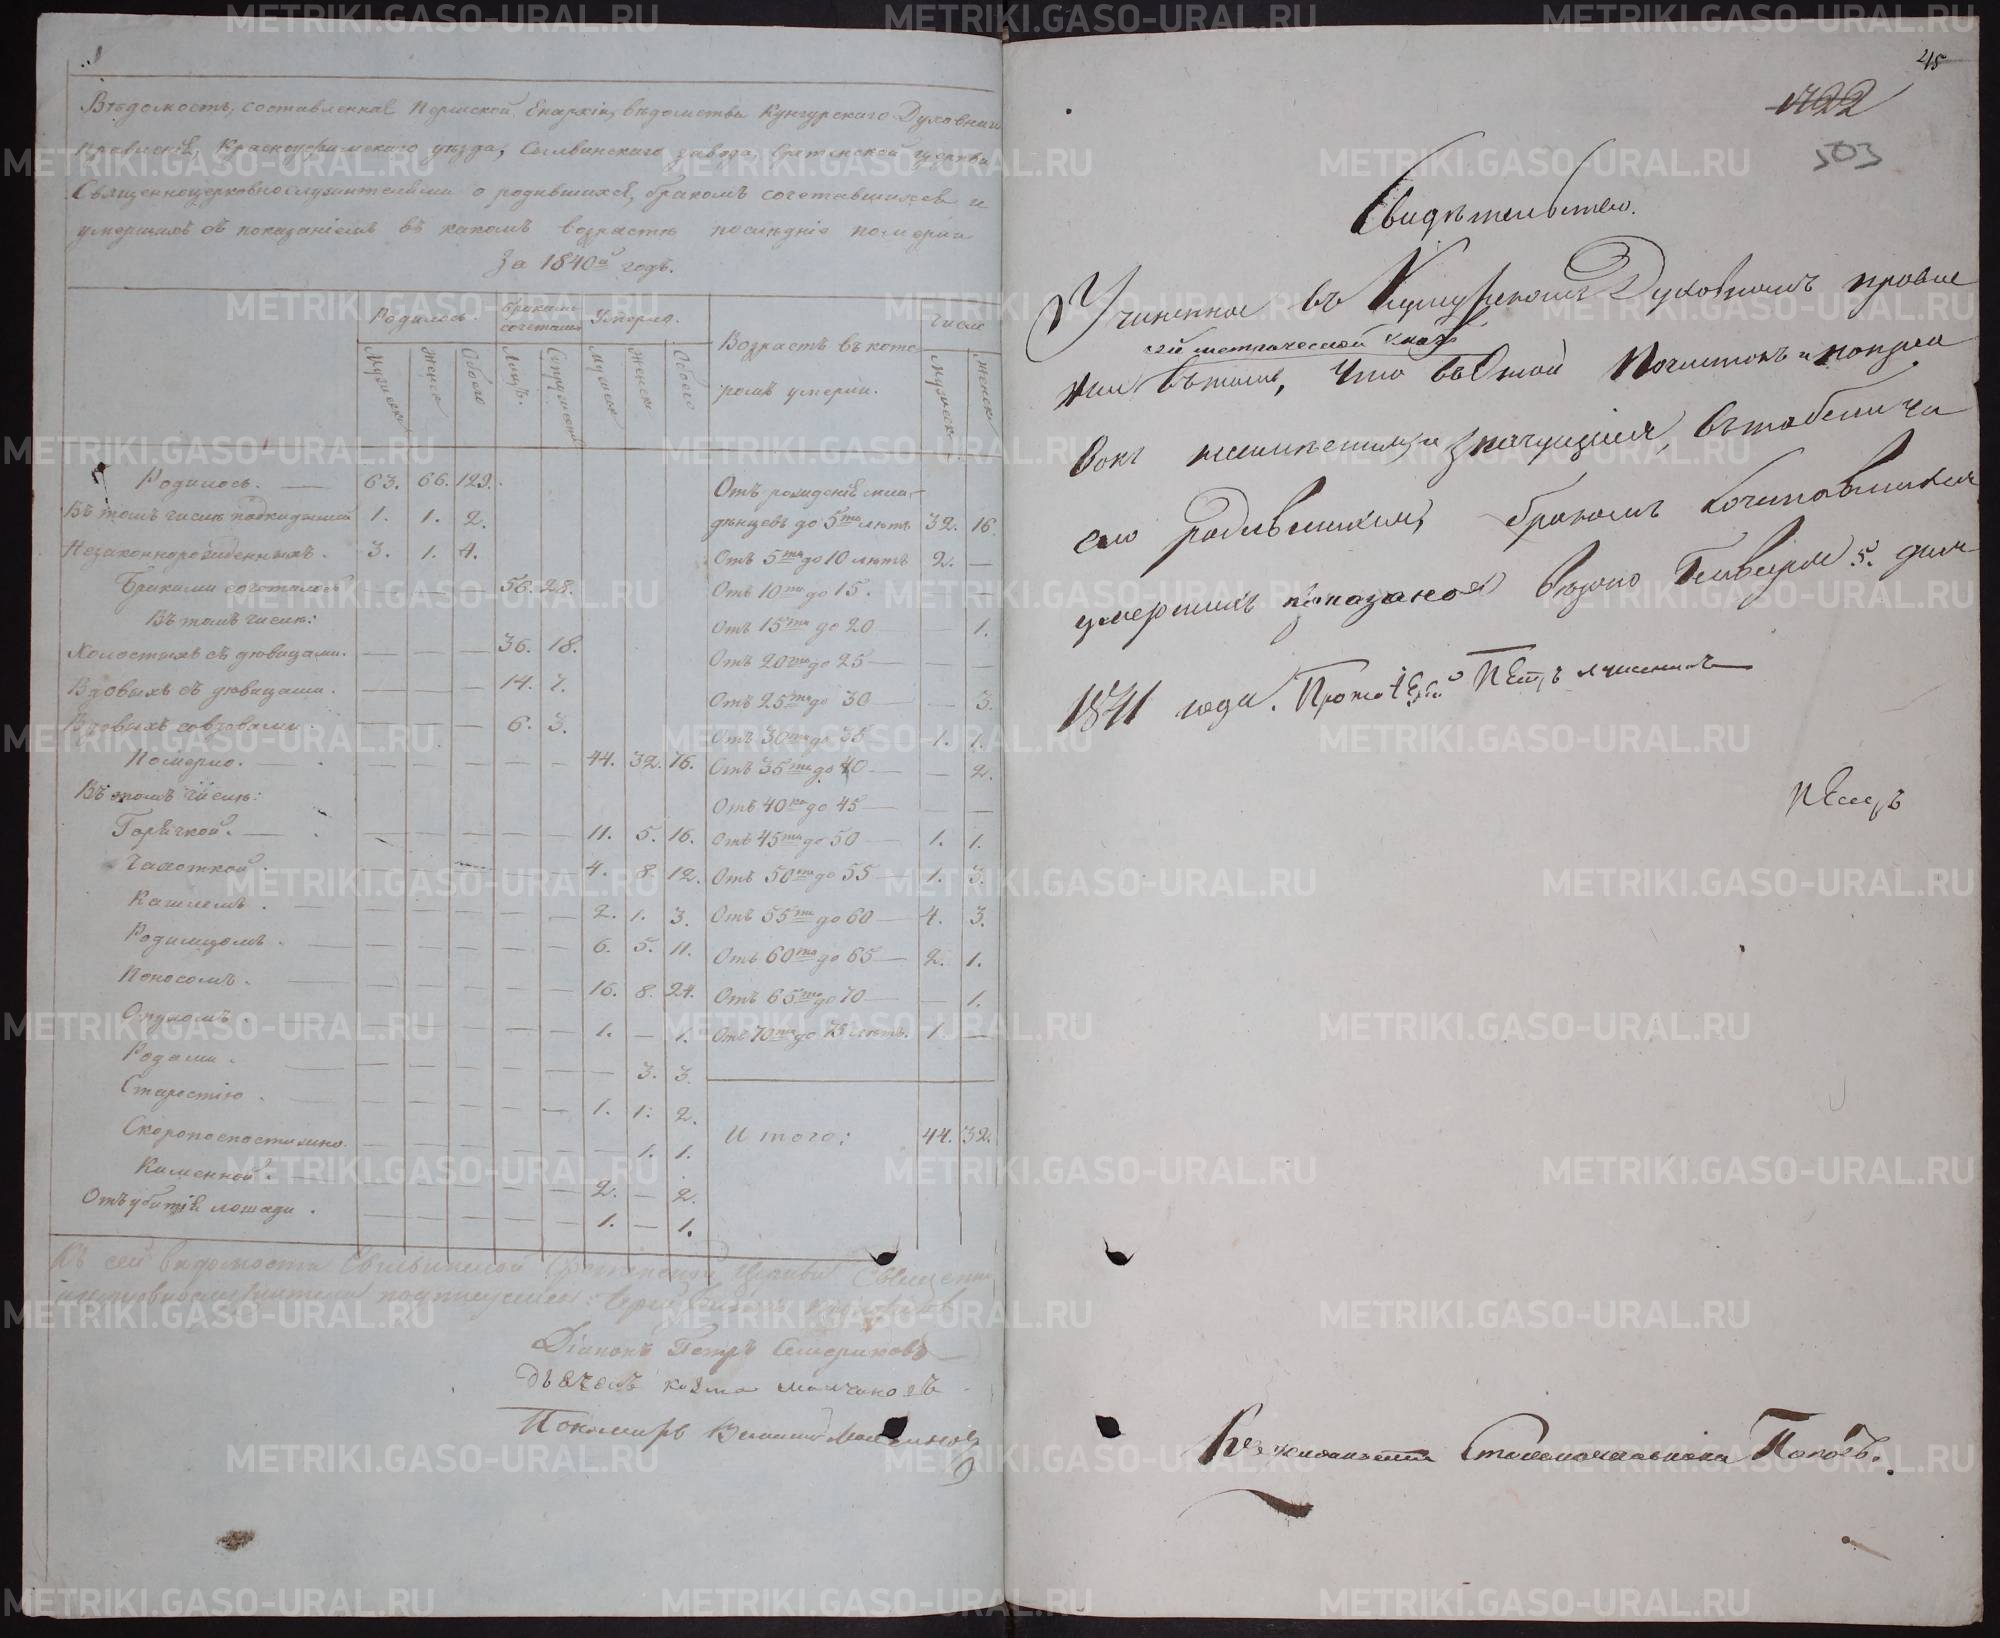 Вѣдомость, составленная Пермской Епархіи, вѣдомства Кунгурскаго Духовнаго
Правленія, Красноуфимскаго уѣзда, Сылвинскаго завода, Срѣтенской церкви
Священноцерковнослужителями о родившихся, бракомъ сочетавшихся и
умершихъ съ показаніемъ въ какомъ возрастѣ послѣдніе померли
За 1840й годъ.
Родилось. Браками сочетались Умерло. Возрастъ въ кото- Число
Мужеска Женска Обоего Лицъ. Супружествъ Мужеска Женска Обоего ромъ умерли. Мужеска Женска
Родилось. — 63. 66. 129.
Въ томъ числѣ подкидышей 1. 1. 2.
Незаконнорожденныхъ. 3. 1. 4.
Браками сочеталось — — — 56. 28.
Въ томъ числѣ:
Холостыхъ съ дѣвицами. — — — 36. 18.
Вдовыхъ съ дѣвицами. — — — 14. 7.
Вдовыхъ со вдовами — — — 6. 3.
Померло. — — — — — — 44. 32. 76.
Въ томъ числѣ:
Горячкой. — — — — — — 11. 5. 16.
Чахоткой. — — — — — 4. 8. 12.
Кашлемъ. — — — — — — 2. 1. 3.
Родимцомъ. — — — — — — 6. 5. 11.
Поносомъ. — — — — — — 16. 8. 24.
Опухомъ. — — — — — 1. — 1.
Родами. — — — — — — — 3. 3.
Старостію. — — — — — 1. 1. 2.
Скоропостижно. — — — — — — 1. 1.
Каменной. — — — — — — 2. — 2.
Отъ убитія лошади. — — — — — 1. — 1.
Отъ рожденія мла-
дѣнцевъ до 5ти лѣтъ 32. 16.
Отъ 5ти до 10 лѣтъ 2. —
Отъ 10ти до 15. — —
Отъ 15ти до 20 — — 1.
Отъ 20ти до 25 — — —
Отъ 25ти до 30 — — 3.
Отъ 30ти до 35 1. 1.
Отъ 35ти до 40 — — 2.
Отъ 40ка до 45 — — —
Отъ 45ти до 50 — 1. 1.
Отъ 50ти до 55 — 1. 3.
Отъ 55ти до 60 — 4. 3.
Отъ 60ти до 65 — 2. 1.
Отъ 65ти до 70 — — 1.
Отъ 70ти до 75 лѣтъ. 1. —
Итого: 44. 32.
Къ сей вѣдомости Сылвинской Срѣтенской Церкви Священно
церковнослужители подписуемся: Іерей
Діаконъ Петръ Семериковъ
Дьячекъ козма
Пономарь
45
1722
503
Свидѣтельство.
Учиненное въ Кунгурскомъ Духовномъ правле
сей метрической книгѣ
ніи въ томъ, что въ оной почистокъ и поправ
вокъ значущихся, въ табели чи
сло родившихся, бракомъ сочетавшихся
умершихъ показано вѣрно Генваря 5. дня
1841 года. Протоіерей Петръ
Петръ
Столоначальника Поповъ.
METRIKI.GASO-URAL.RU